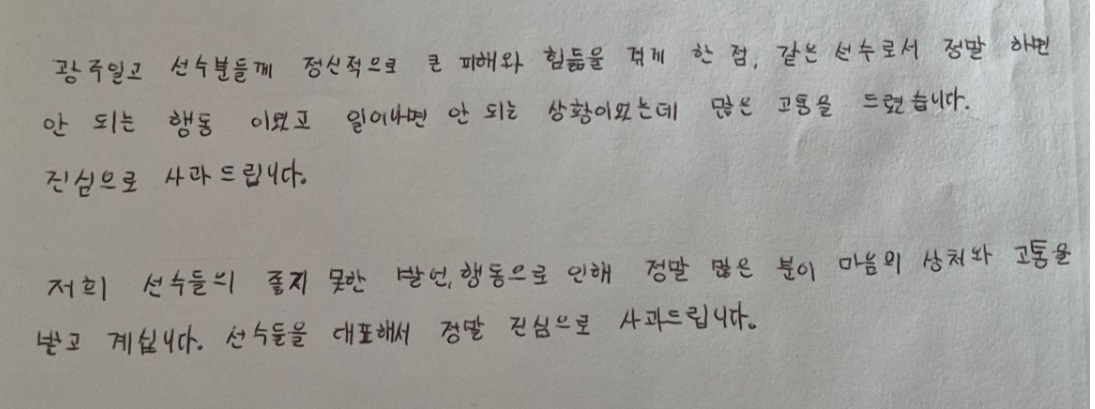 광주일고 선수분들께 정신적으로 큰 피해와 힘듦을 겪게 한 점, 같은 선수로서 정말 하면
안 되는 행동 이였고 일어나면 안 되는 상황이였는데 많은 고통을 드렸습니다.
진심으로 사과드립니다.
저희 선수들의 좋지 못한 발언,행동으로 인해 정말 많은 분이 마음의 상처와 고통을
받고 계십니다. 선수들을 대표해서 정말 진심으로 사과드립니다.